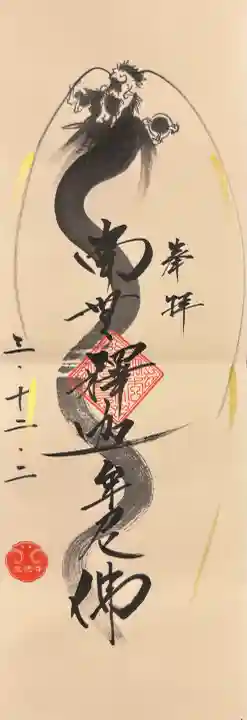 奉拝
南無釋迦牟尼佛
三・十二・二